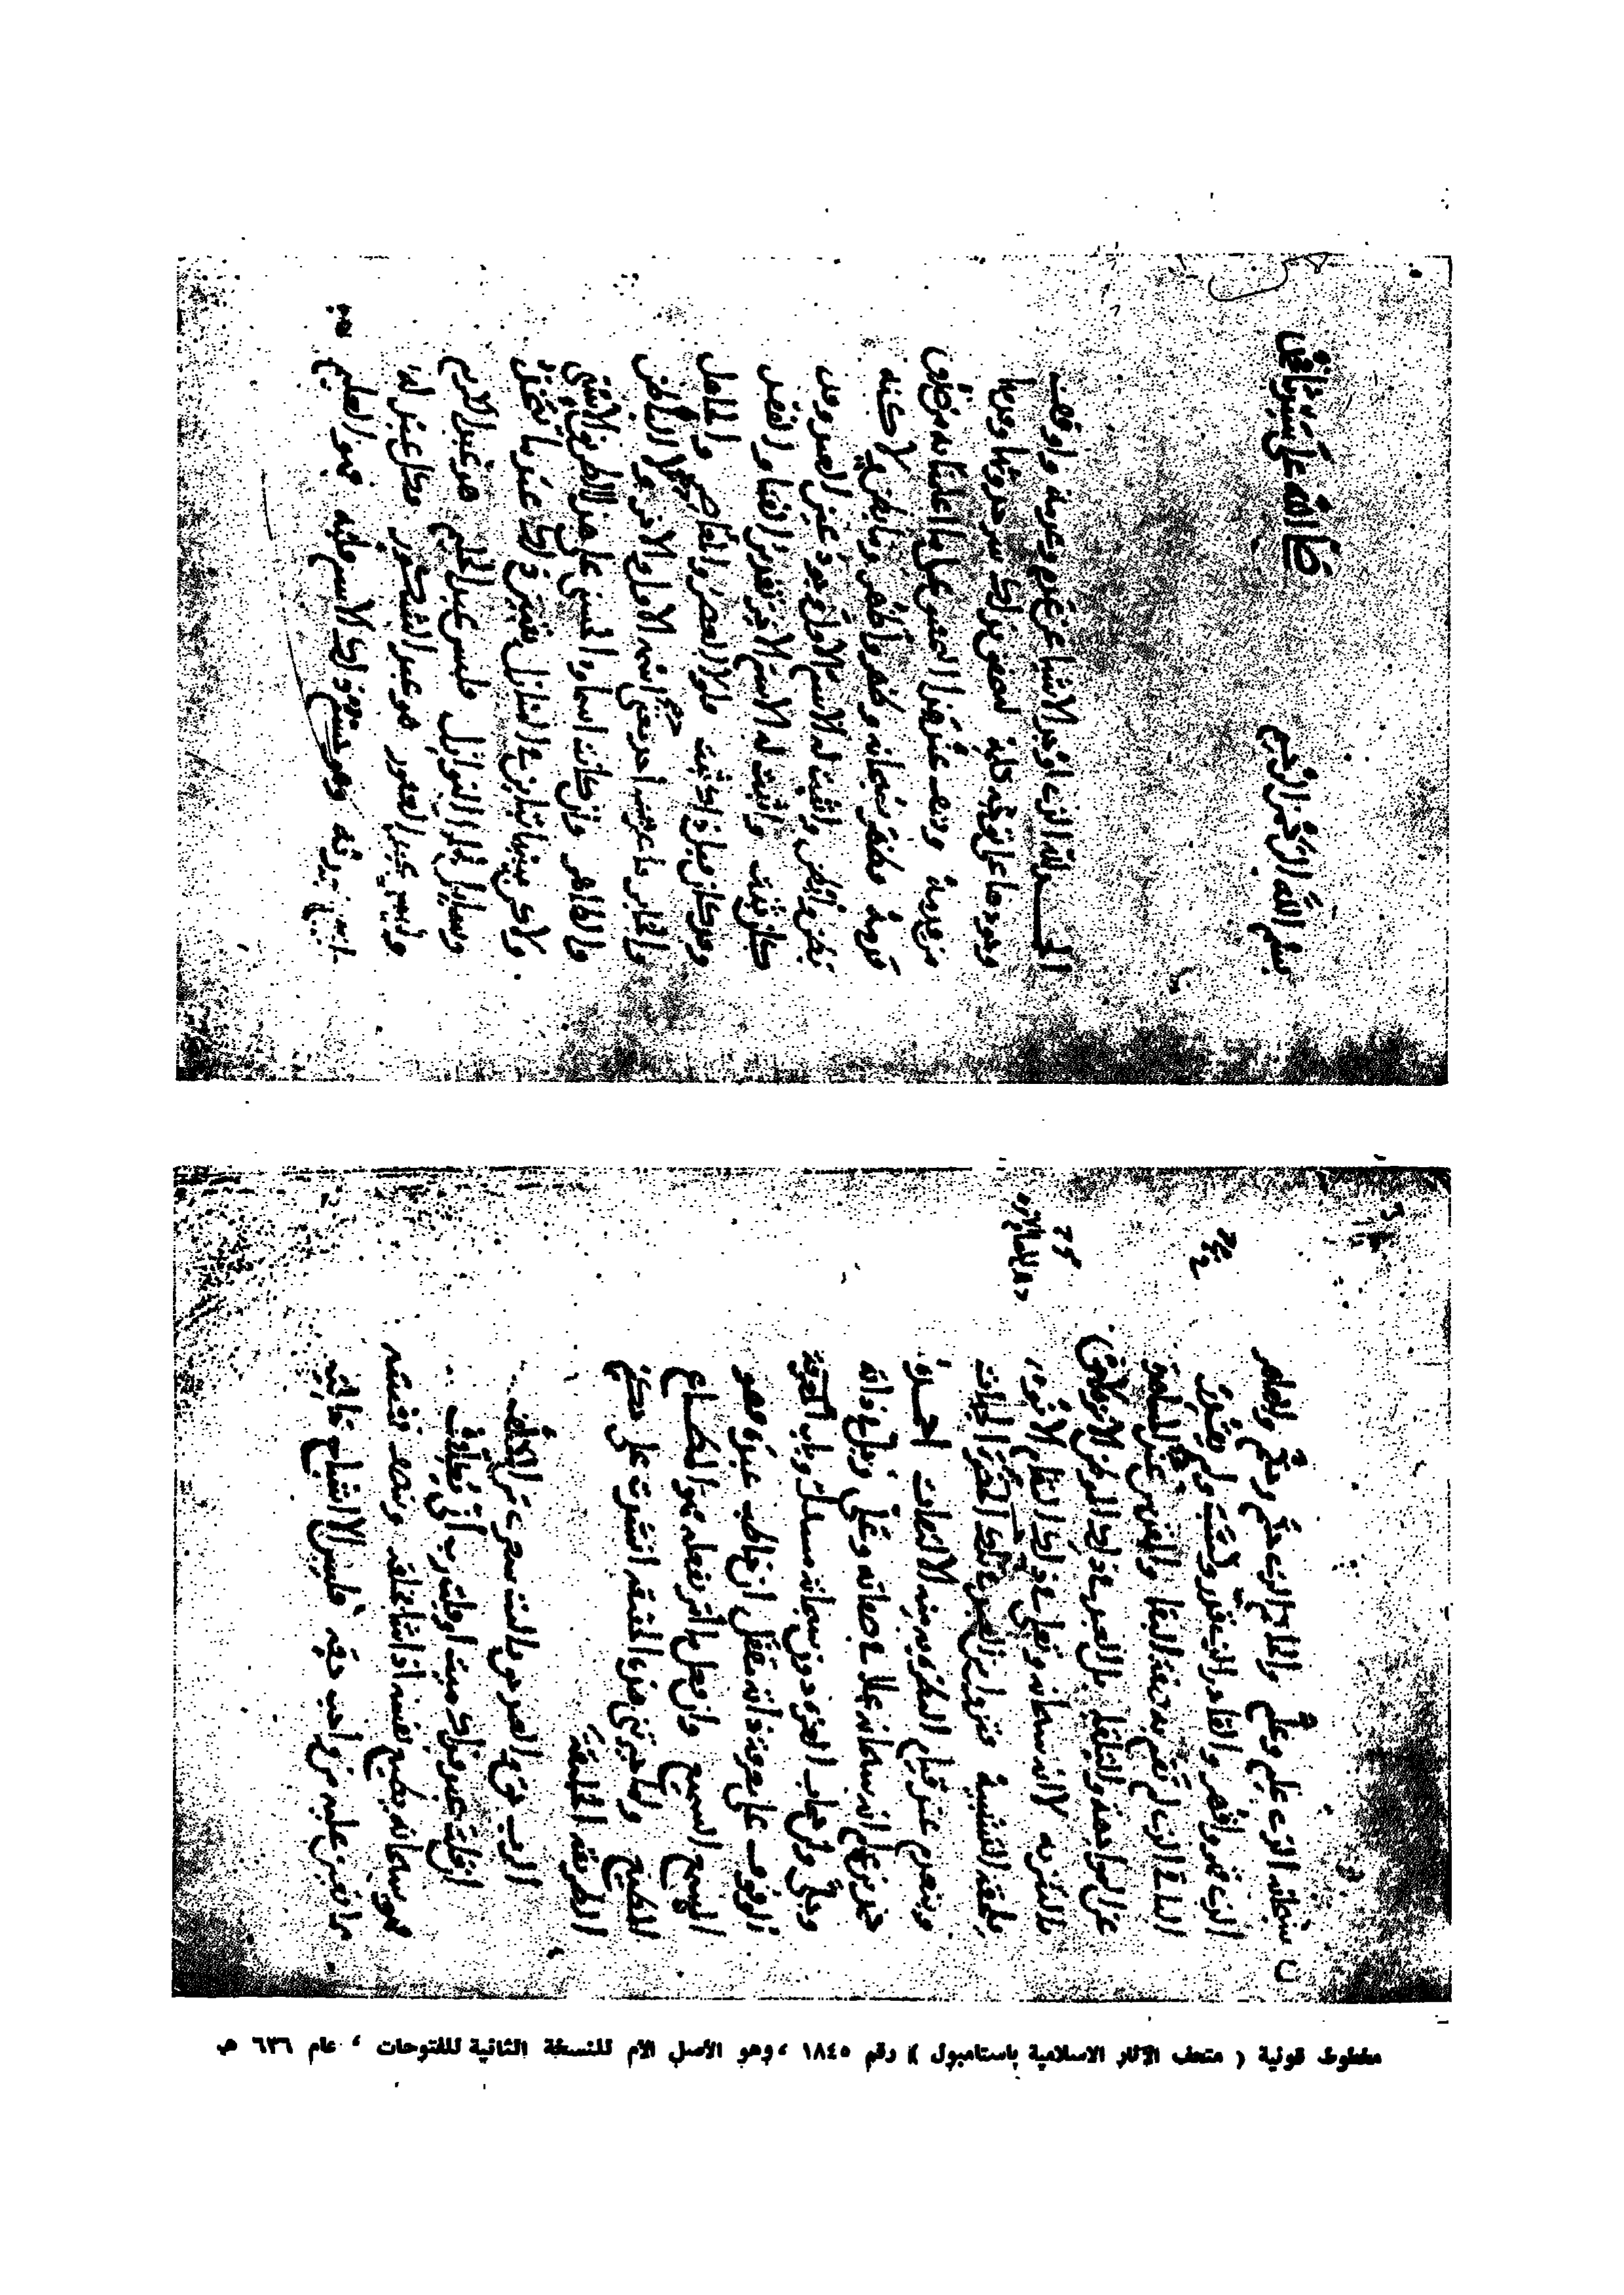 بسم الله الرحمن الرحيم صلى الله على سيدنا محمد
الحمد لله الذي اوجد الاشيا عن عدم وعدمه واوقف
وجودها على توجه كلمه لنحقق بذلك سر حدوثها وقدمها
من قدمه ونقف عند هذا التحقيق على ما اعلمنا به من صدق
قدمه فظهر سبحانه وظهر واظهر وما بطن ولكنه
بطن وابطن واثبت له الاسم الاول وجود عين العبد وقد
كان ثبت واثبت له الاسم الاخر تقدير الفنا والفقد
وقد كان قبل ذلك ثبت فلولا العصر والمعاصر والجاهل
والخابر ما عرف احد معنى اسمه الاول والاخر ولا الباطن
والظاهر وان كانت اسماوه الحسنى على هذا الطريق الاسنى
ولاكن بينها تباين في المنازل يتبين ذلك عند ما تتخذ
وسايل لحلول النوازل فليس عبد الحليم هو عبد الكريم
وليس عبد الغفور هو عبد الشكور فكل عبد له
اسم هو ربه وهو جسم ذلك الاسم قلبه فهو العليم
سبحانه الذي علم وعلم والحاكم الذي حكم وحكم والقاهر
الذي قهر واقهر والقادر الذي قدر وكسب ولم يقدر
الباقي الذي لم تقم به صفة البقا والمقدس عند المشاهدة
عن المواجهة والتلقا بل العبد في ذلك الموطن الانزه لاحق
بالتنزيه لا انه سبحانه وتعالى في ذلك المقام الانوه
يلحقه التشبيه فتزول من العبد في تلك الحضرة الجهات
وينعدم عند قيام النظرة به منه الالتفات احمده
حمد من علم انه سبحانه علا في صفاته وعلى وجل في ذاته
وجلى وان حجاب العزة دون سبحاته مسدل وباب
الوقوف على معرفة ذاته مقفل ان خاطب عبده فهو
المسمع السميع وان فعل ما امر بفعله فهو المطاع
المطيع ولما حيرتني هذه الحقيقة انشدت على حكم
الطريقة للخليقة
الرب حق والعبد حق يا ليت شعري من المكلف
ان قلت عبد فذاك ميت او قلت رب انى يكلف
فهو سبحانه يطيع نفسه اذا شا بخلقه وينصف نفسه
مما تعين عليه من واجب حقه فليس الا اشباح خالية
مخطوط قونية ( متحف الآثار الاسلامية باستامبول ) رقم ١٨٤٥ ، وهو الأصل الأم للنسخة الثانية للفتوحات ، عام ٦٣٦ هـ